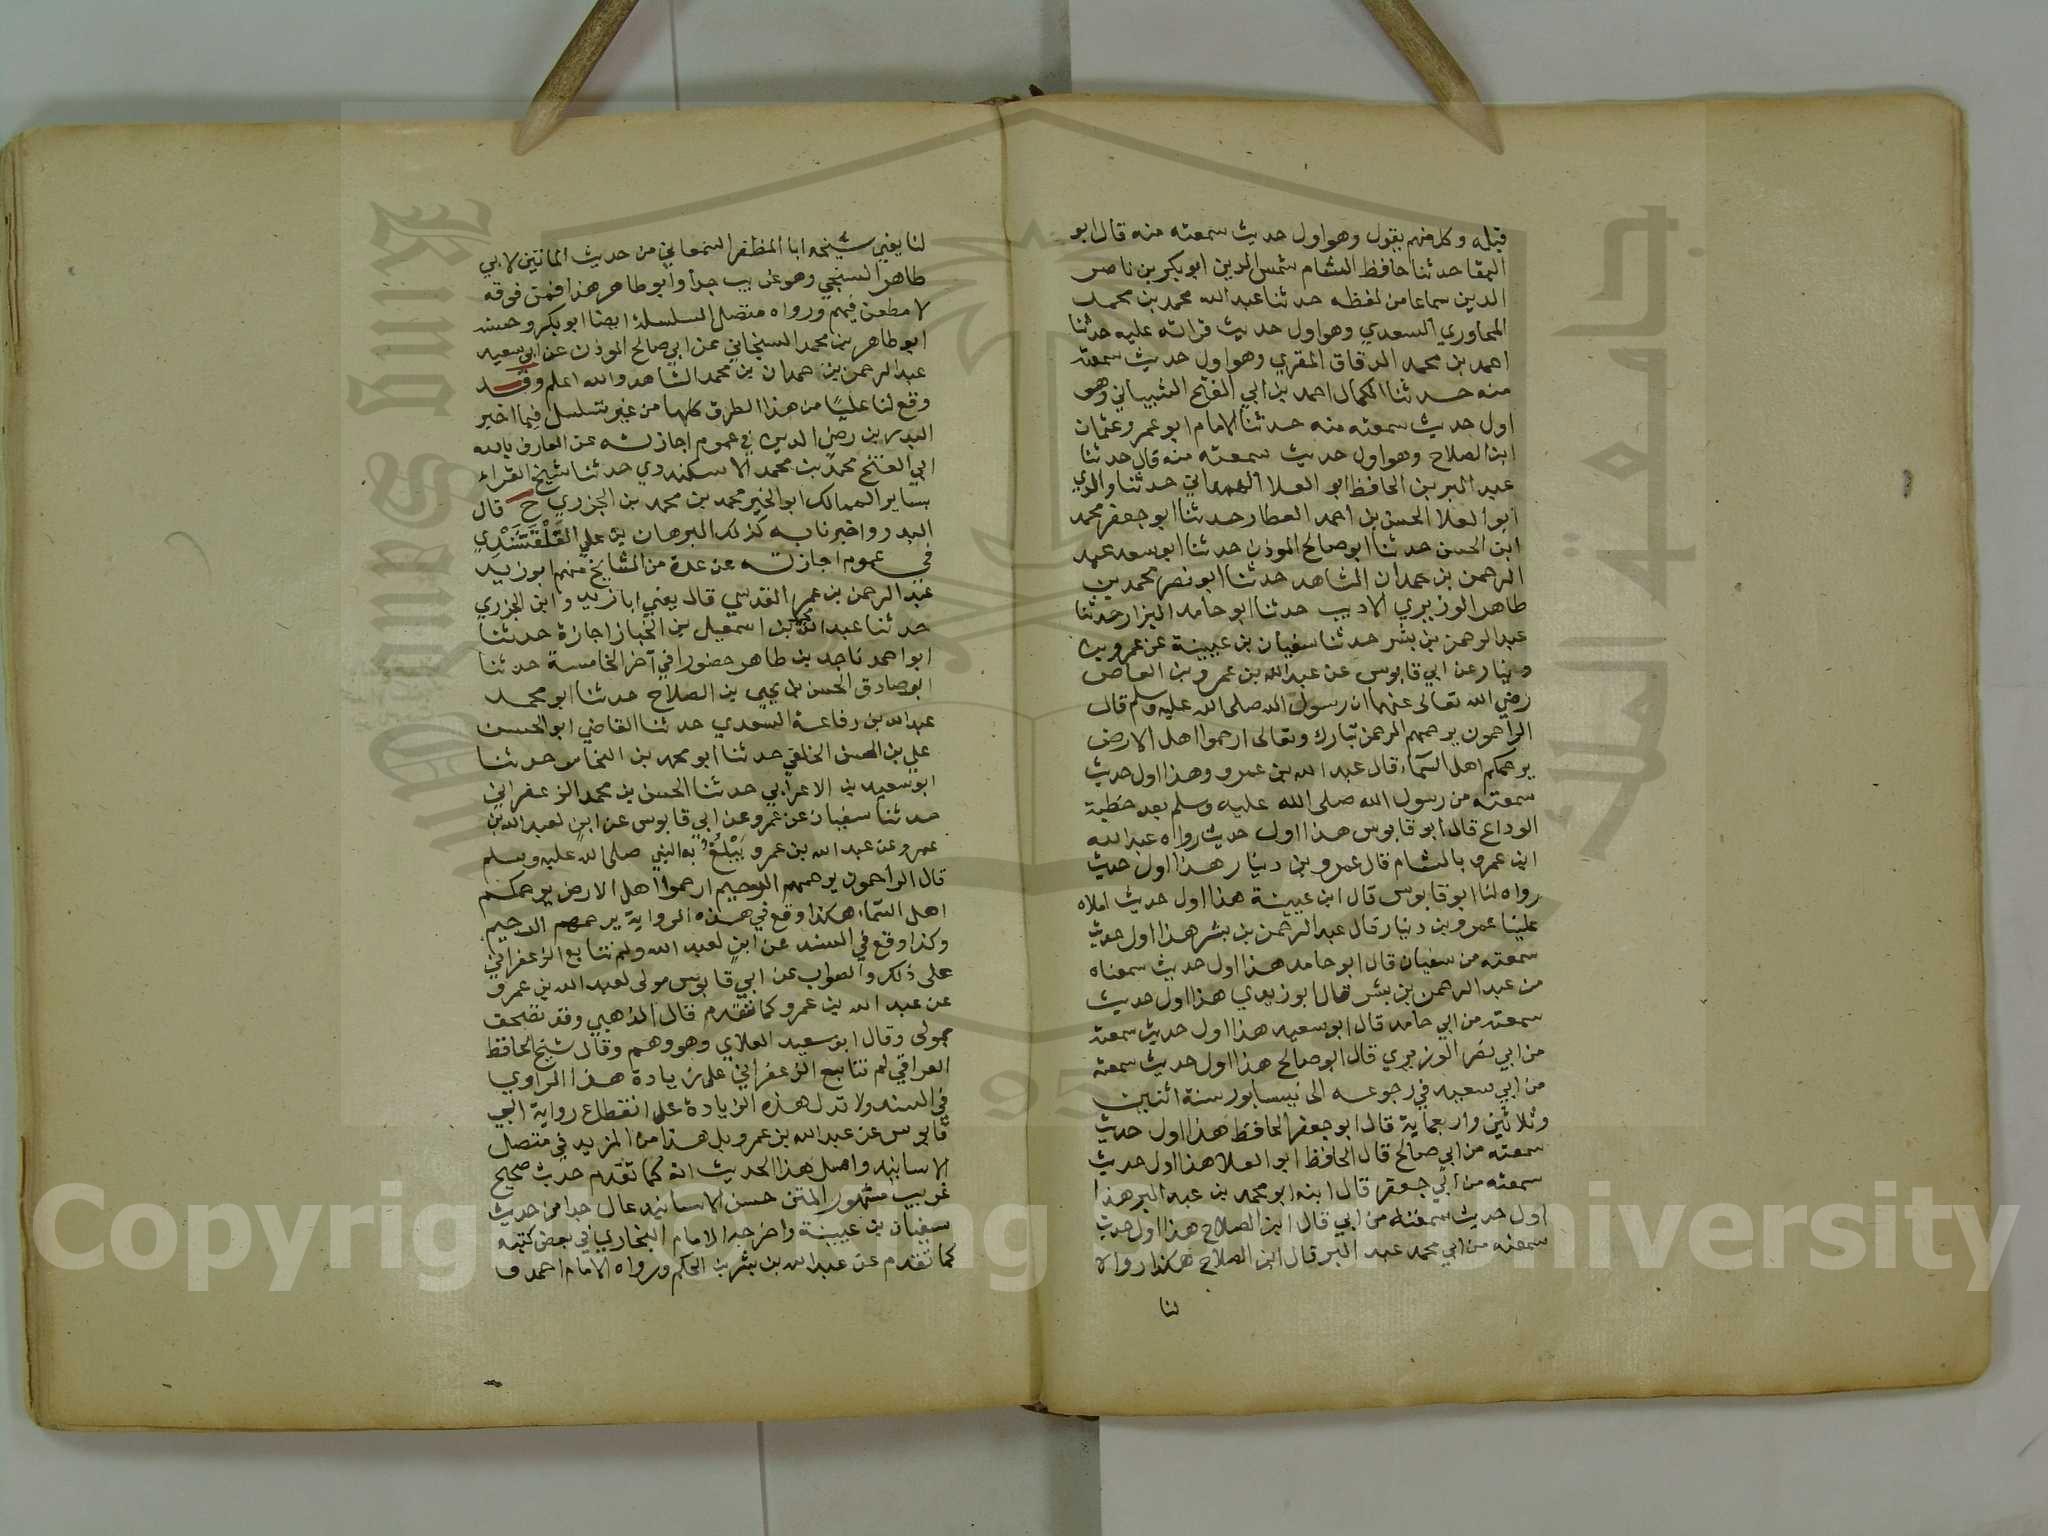 قبله وكل منهم يقول وهو اول حديث سمعته منه قال ابو
البقا حدثنا حافظ الشام شمس الدين ابو بكر بن ناصر
الدين سماعا من لفظه حدثنا عبد الله محمد بن محمد
المحاوري السعدي وهو اول حديث قراته عليه حدثنا
احمد بن محمد الدقاق المقري وهو اول حديث سمعته
منه حدثنا الكمال احمد بن ابي الفتح الشيباني وهو
اول حديث سمعته منه حدثنا الامام ابو عمرو عثمان
ابن الصلاح وهو اول حديث سمعته منه قال حدثنا
عبد البر بن الحافظ ابو العلا الهمداني حدثنا والدي
ابو العلا الحسن بن احمد العطار حدثنا ابو جعفر محمد
ابن الحسن حدثنا ابو صالح الموذن حدثنا ابو سعد عبد
الرحمن بن حمدان الشاهد حدثنا ابو نصر محمد بن
طاهر الوزيري الاديب حدثنا ابو حامد البزار حدثنا
عبد الرحمن بن بشر حدثنا سفيان بن عيينة عن عمرو بن
دينار عن ابي قابوس عن عبد الله بن عمرو بن العاص
رضي الله تعالى عنهما ان رسول الله صلى الله عليه وسلم قال
الراحمون يرحمهم الرحمن تبارك وتعالى ارحموا اهل الارض
يرحمكم اهل السماء قال عبد الله بن عمرو وهذا اول حديث
سمعته من رسول الله صلى الله عليه وسلم بعد خطبة
الوداع قال ابو قابوس هذا اول حديث رواه عبد الله
ابن عمرو بالشام قال عمرو بن دينار هذا اول حديث
رواه لنا ابو قابوس قال ابن عيينة هذا اول حديث املاه
علينا عمرو بن دينار قال عبد الرحمن بن بشر هذا اول حديث
سمعته من سفيان قال ابو حامد هذا اول حديث سمعناه
من عبد الرحمن بن بشر قال ابو زيدي هذا اول حديث
سمعته من ابي حامد قال ابو سعيد هذا اول حديث سمعته
من ابي نصر الوزيري قال ابو صالح هذا اول حديث سمعته
من ابي سعيد في رجوعه الى نيسابور سنة اثنين
وثلاثين واربعماية قال ابو جعفر الحافظ هذا اول حديث
سمعته من ابي صالح قال الحافظ ابو العلا هذا اول حديث
سمعته من ابي جعفر قال ابنه ابو محمد بن عبد البر هذا
اول حديث سمعته من ابي قال ابن الصلاح هذا اول حديث
سمعته من ابي محمد عبد البر قال ابن الصلاح هكذا رواه
لنا
لنا يعني شيخه ابا المظفر السمعاني من حديث المائتين لابي
طاهر السنجي وهو غريب جدا وابو طاهر هذا فمن فوقه
لا مطعن فيهم ورواه متصل السلسلة ايضا ابو بكر وحسنه
ابو طاهر بن محمد السنجاني عن ابي صالح الموذن عن ابي سعيد
عبد الرحمن بن حمدان بن محمد الشاهد والله اعلم وقد
وقع لنا عليا من هذا الطرق كلها من غير تسلسل فيما اخبر
البدر بن رضي الدين في عموم اجازته عن العارف بالله
ابي الفتح محمد بن محمد الاسكندري حدثنا شيخ القراء
بساير الممالك ابو الخير محمد بن محمد بن الجزري ح قال
البدر واخبرنا به كذلك البرهان بن علي القلقشندي
في عموم اجازته عن عدة من المشايخ منهم ابو زيد
عبد الرحمن بن عمر القدسي قال يعني ابا زيد وابن الجزري
حدثنا عبد الله بن اسمعيل بن الخباز اجازة حدثنا
ابو احمد ناجد بن طاهر حضورا في آخر الخامسة حدثنا
ابو صادق الحسن بن يحيى بن الصلاح حدثنا ابو محمد
عبد الله بن رفاعة السعدي حدثنا القاضي ابو الحسن
علي بن الحسن الخلعي حدثنا ابو محمد بن النحاس حدثنا
ابو سعيد بن الاعرابي حدثنا الحسن بن محمد الزعفراني
حدثنا سفيان عن عمرو عن ابي قابوس عن ابن لعبد الله بن
عمرو عن عبد الله بن عمرو يبلغ به النبي صلى الله عليه وسلم
قال الراحمون يرحمهم الرحيم ارحموا اهل الارض يرحمكم
اهل السماء هكذا وقع في هذه الرواية يرحمهم الرحيم
وكذا وقع في السند عن ابن لعبد الله ولم نتابع الزعفراني
على ذلك والصواب عن ابي قابوس مولى لعبد الله بن عمرو
عن عبد الله بن عمرو كما تقدم قال الذهبي وقد تصحف
بمولى وقال ابو سعيد العلاي وهو وهم وقال شيخ الحافظ
العراقي لم نتابع الزعفراني على زيادة هذا الراوي
في السند ولا تدل هذه الزيادة على انقطاع رواية ابي
قابوس عن عبد الله بن عمرو بل هذا من المزيد في متصل
الاسانيد واصل هذا الحديث انه كما تقدم حديث صحيح
غريب مشهور المتن حسن الاسانيد عال جدا من حديث
سفيان بن عيينة واخرجه الامام البخاري في بعض كتبه
كما تقدم عن عبد الله بن بشر بن الحكم ورواه الامام احمد و
Copyright © King Saud University
جامعة الملك سعود
King Saud University
1957